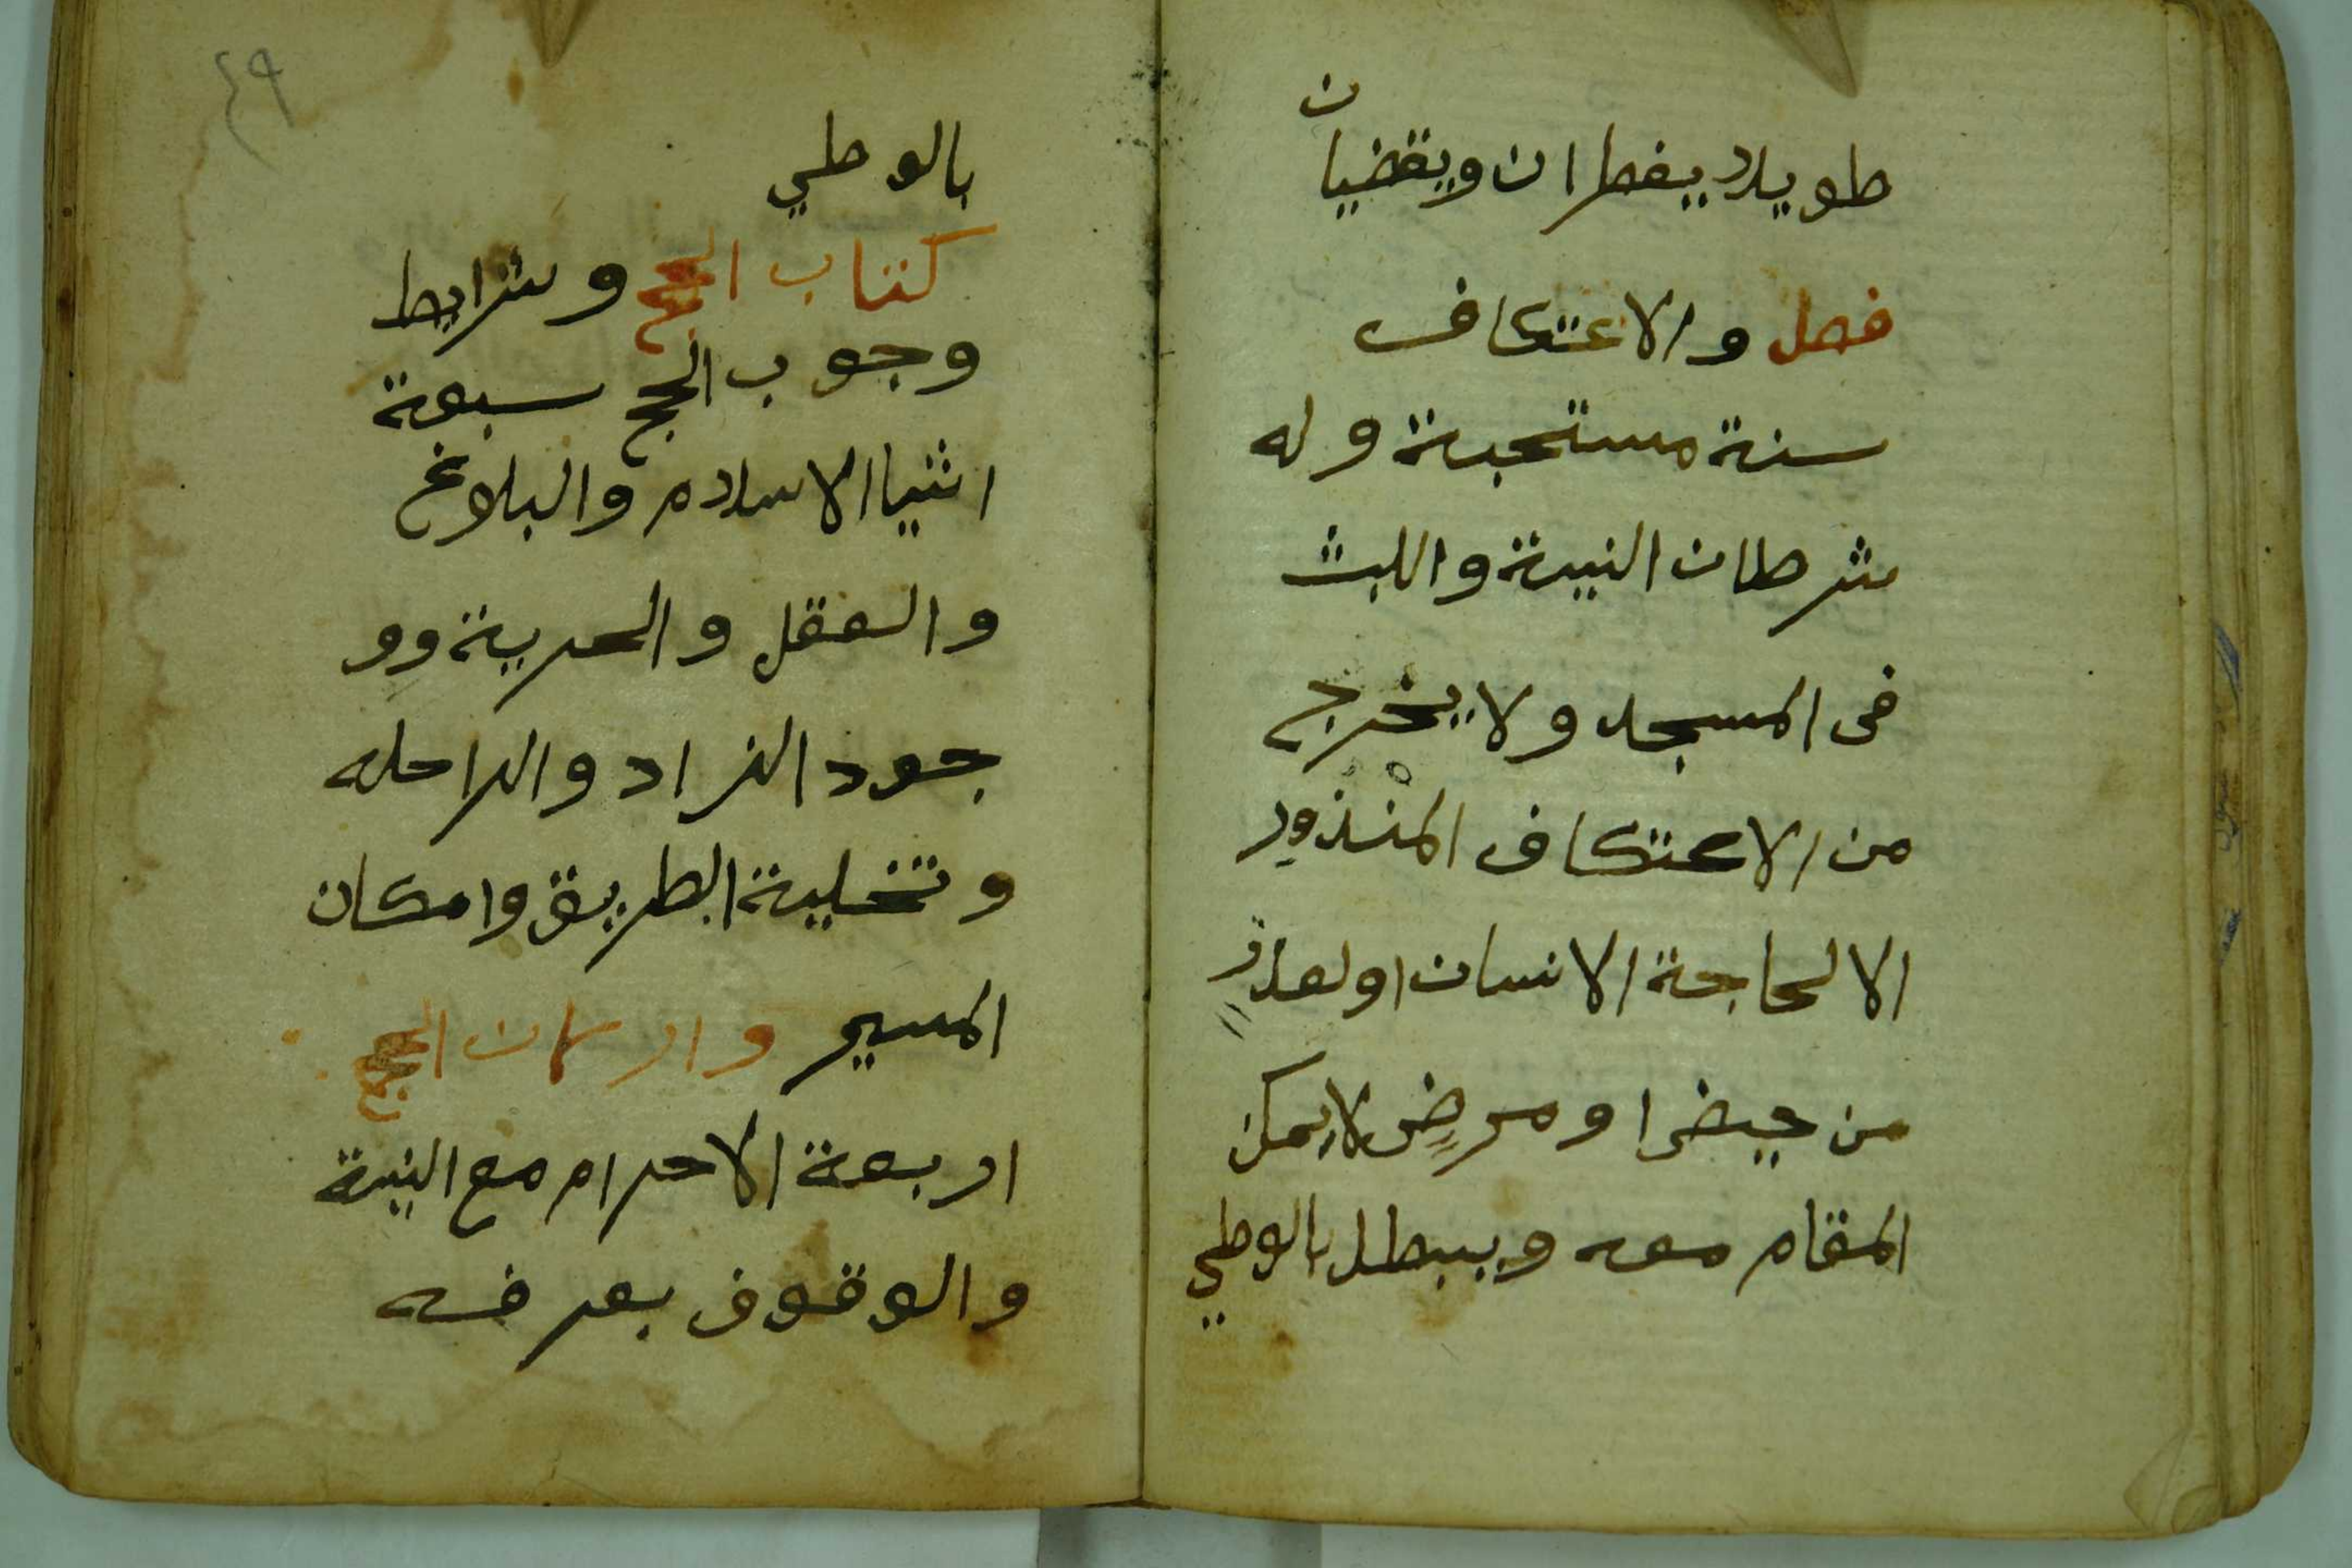 طويلا يفطران ويقضيان
فصل والاعتكاف
سنة مستحبة وله
شرطان النية واللبث
فى المسجد ولا يخرج
من الاعتكاف المنذور
الا لحاجة الانسان اولعذرٍ
من حيض او مرضٍ لا يمكن
المقام معه ويبطل بالوطي
٤٩
بالوطي
كتاب الحج وشرايط
وجوب الحج سبعة
اشيا الاسلام والبلوغ
والعقل والحرية وو
جود الزاد والراحله
وتخلية الطريق وامكان
المسير واركان الحج
اربعة الاحرام مع النية
والوقوف بعرفه